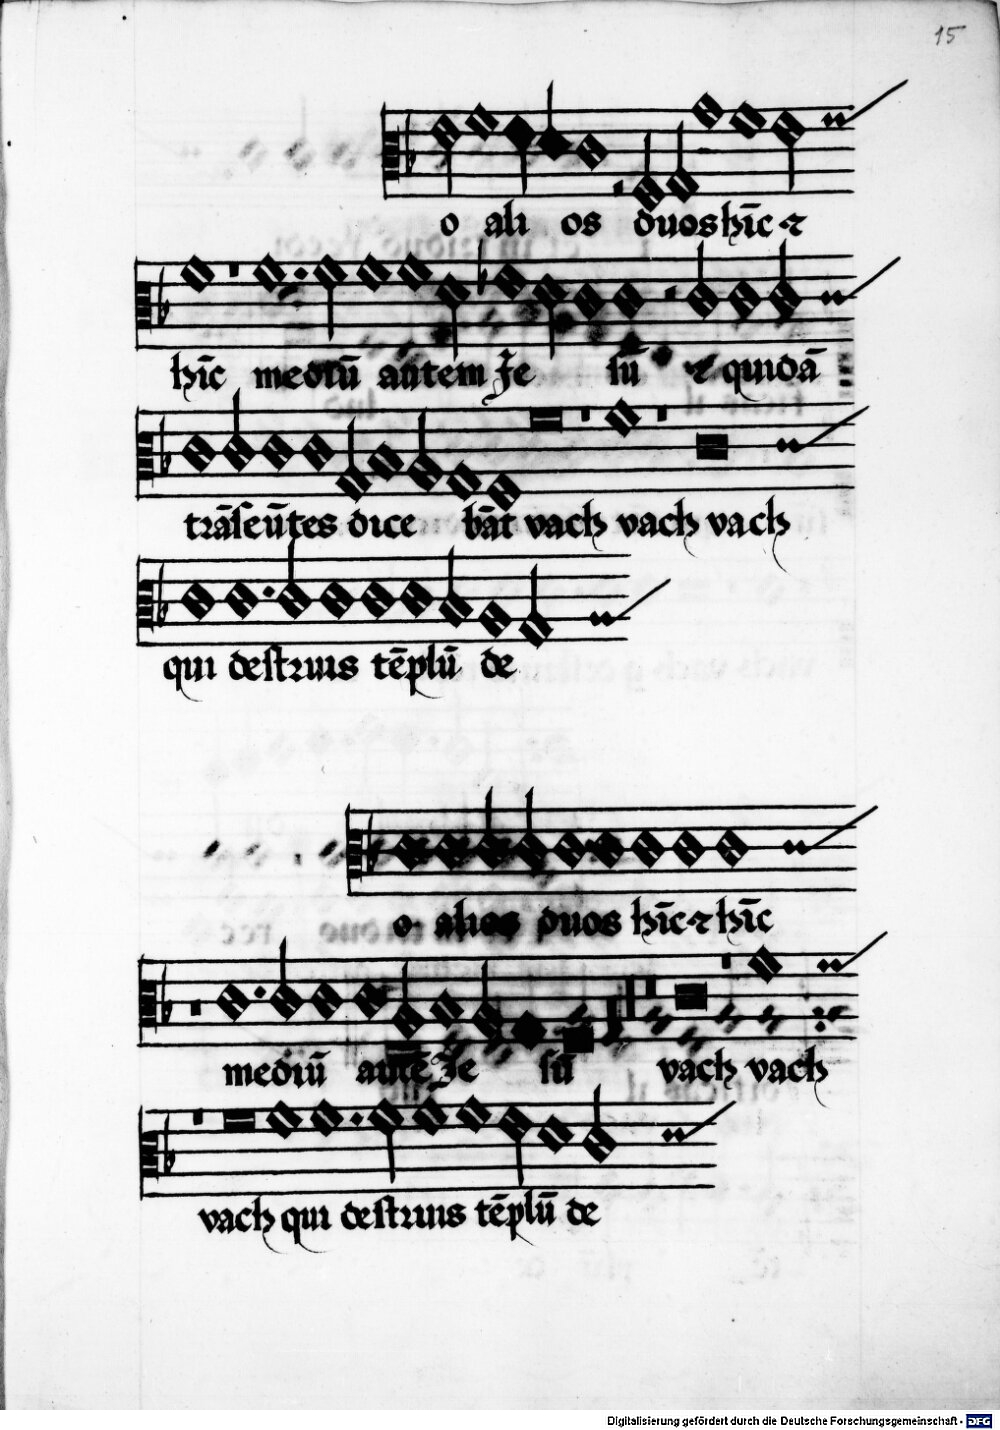 15
o ali os duos hīc ⁊
hīc mediū autem Je sū ⁊ quidā
trāſeūtes dice bāt vach vach vach
qui deſtruis tēplū de
o alios duos hīc ⁊ hīc
mediū autē Je ſū vach vach
vach qui deſtruis tēplū de
Digitalisierung gefördert durch die Deutsche Forschungsgemeinschaft - DFG